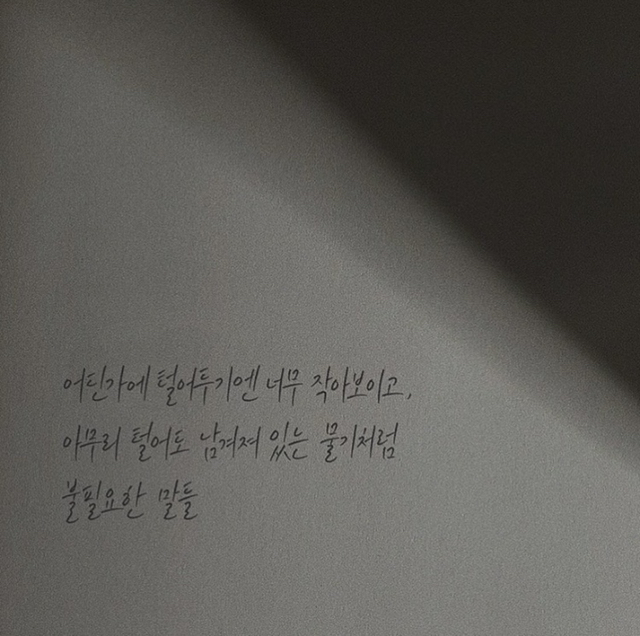 어딘가에 털어두기엔 너무 작아보이고,
아무리 털어도 남겨져 있는 물기처럼
불필요한 말들